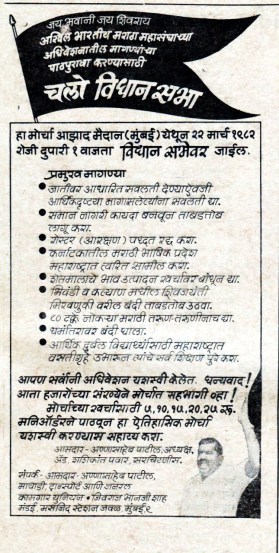 जय भवानी जय शिवराय
अखिल भारतीय मराठा महासंघाच्या
अधिवेशनातील मागण्यांचा
पाठपुरावा करण्यासाठी
चलो विधान सभा
हा मोर्चा आझाद मैदान (मुंबई) येथून २२ मार्च १९८२
रोजी दुपारी १ वाजता विधान सभेवर जाईल.
प्रमुख मागण्या
जातीवर आधारित सवलती देण्याऐवजी
आर्थिकदृष्ट्या मागासलेल्यांना सवलती द्या.
समान नागरी कायदा बनवून ताबडतोब
लागू करा.
रोस्टर (आरक्षण) पध्दत रद्द करा.
कर्नाटकातील मराठी भाषिक प्रदेश
महाराष्ट्रात त्वरित सामील करा.
शेतमालाचे भाव उत्पादन खर्चावर बांधून द्या.
भिवंडी व कल्याण मधील शिवजयंती
मिरवणुकी वरील बंदी ताबडतोब उठवा.
८० टक्के नोकऱ्या मराठी तरूण-तरूणींनाच द्या.
धर्मांतरावर बंदी घाला.
आर्थिक दुर्बल विद्यार्थ्यांसाठी महाराष्ट्रात
वसतीगृहे उभारून त्यांचे सर्व शिक्षण पुरे करा.
आपण सर्वांनी अधिवेशन यशस्वी केलेत. धन्यवाद!
आता हजारोंच्या संख्येने मोर्चात सहभागी व्हा!
मोर्चाच्या खर्चासाठी ५,१०,१५,२०,२५ रू.
मनिऑर्डरने पाठवून हा ऐतिहासिक मोर्चा
यशस्वी करण्यास सहाय्य करा.
आमदार- अण्णासाहेब पाटील, अध्यक्ष,
अॅड. शशिकांत पवार, सरचिटणीस.
संपर्क - आमदार- अण्णासाहेब पाटील,
माथाडी, ट्रान्सपोर्ट आणि जनरल
कामगार युनियन • भानजी शाह
मंडई, मसजिद स्टेशन जवळ, मुंबई ९